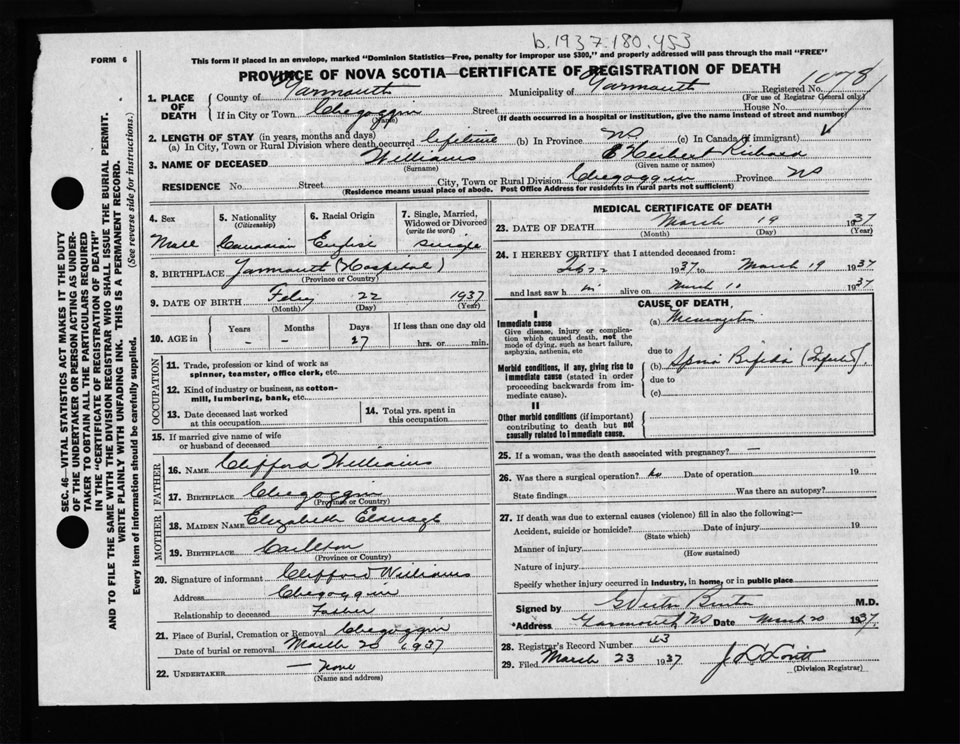 b.1937.180.453
FORM 6
This form if placed in an envelope, marked "Dominion Statistics—Free, penalty for improper use $300," and properly addressed will pass through the mail "FREE"
PROVINCE OF NOVA SCOTIA—CERTIFICATE OF REGISTRATION OF DEATH
1078
1. PLACE OF DEATH
County of Yarmouth Municipality of Yarmouth Registered No.
(For use of Registrar General only)
If in City or Town Chegoggin Street House No.
(Name) (If death occurred in a hospital or institution, give the name instead of street and number)
2. LENGTH OF STAY (in years, months and days)
(a) In City, Town or Rural Division where death occurred lifetime (b) In Province NS (c) In Canada (if immigrant)
3. NAME OF DECEASED Williams E Herbert Richard
(Surname) (Given name or names)
RESIDENCE No. Street City, Town or Rural Division Chegoggin Province NS
(Residence means usual place of abode. Post Office Address for residents in rural parts not sufficient)
4. Sex
Male
5. Nationality
(Citizenship)
Canadian
6. Racial Origin
English
7. Single, Married, Widowed or Divorced
(write the word)
single
8. BIRTHPLACE Yarmouth (Hospital)
(Province or Country)
9. DATE OF BIRTH Feby 22 1937
(Month) (Day) (Year)
10. AGE in
Years Months Days If less than one day old
– – 17 hrs. or min.
OCCUPATION
11. Trade, profession or kind of work as
spinner, teamster, office clerk, etc.
12. Kind of industry or business, as cotton-
mill, lumbering, bank, etc.
13. Date deceased last worked
at this occupation
14. Total yrs. spent in
this occupation
15. If married give name of wife
or husband of deceased
FATHER
16. NAME Clifford Williams
17. BIRTHPLACE Chegoggin
(Province or Country)
MOTHER
18. MAIDEN NAME Elizabeth
19. BIRTHPLACE Carleton
(Province or Country)
20. Signature of informant Clifford Williams
Address Chegoggin
Relationship to deceased Father
21. Place of Burial, Cremation or Removal Chegoggin
Date of burial or removal March 20 1937
22. UNDERTAKER — None
(Name and address)
MEDICAL CERTIFICATE OF DEATH
23. DATE OF DEATH March 19 1937
(Month) (Day) (Year)
24. I HEREBY CERTIFY that I attended deceased from:
Feb 22 1937 to March 19 1937
and last saw h im alive on March 10 1937
CAUSE OF DEATH
I
Immediate cause
Give disease, injury or complication which caused death, not the mode of dying, such as heart failure, asphyxia, asthenia, etc
(a)
due to
Morbid conditions, if any, giving rise to immediate cause (stated in order proceeding backwards from immediate cause).
(b) Spina Bifida
due to
(c)
II
Other morbid conditions (if important) contributing to death but not causally related to immediate cause.
25. If a woman, was the death associated with pregnancy? —
26. Was there a surgical operation? no Date of operation 19
State findings Was there an autopsy?
27. If death was due to external causes (violence) fill in also the following:—
Accident, suicide or homicide? Date of injury 19
(State which)
Manner of injury
(How sustained)
Nature of injury
Specify whether injury occurred in industry, in home, or in public place
Signed by M.D.
*Address Yarmouth, NS Date March 20 1937.
28. Registrar's Record Number 43
29. Filed March 23 1937
(Division Registrar)
SEC. 46—VITAL STATISTICS ACT MAKES IT THE DUTY
OF THE UNDERTAKER OR PERSON ACTING AS UNDER-
TAKER TO OBTAIN ALL THE PARTICULARS REQUIRED
IN THE "CERTIFICATE OF REGISTRATION OF DEATH"
AND TO FILE THE SAME WITH THE DIVISION REGISTRAR WHO SHALL ISSUE THE BURIAL PERMIT.
WRITE PLAINLY WITH UNFADING INK. THIS IS A PERMANENT RECORD.
Every item of information should be carefully supplied. (See reverse side for instructions.)